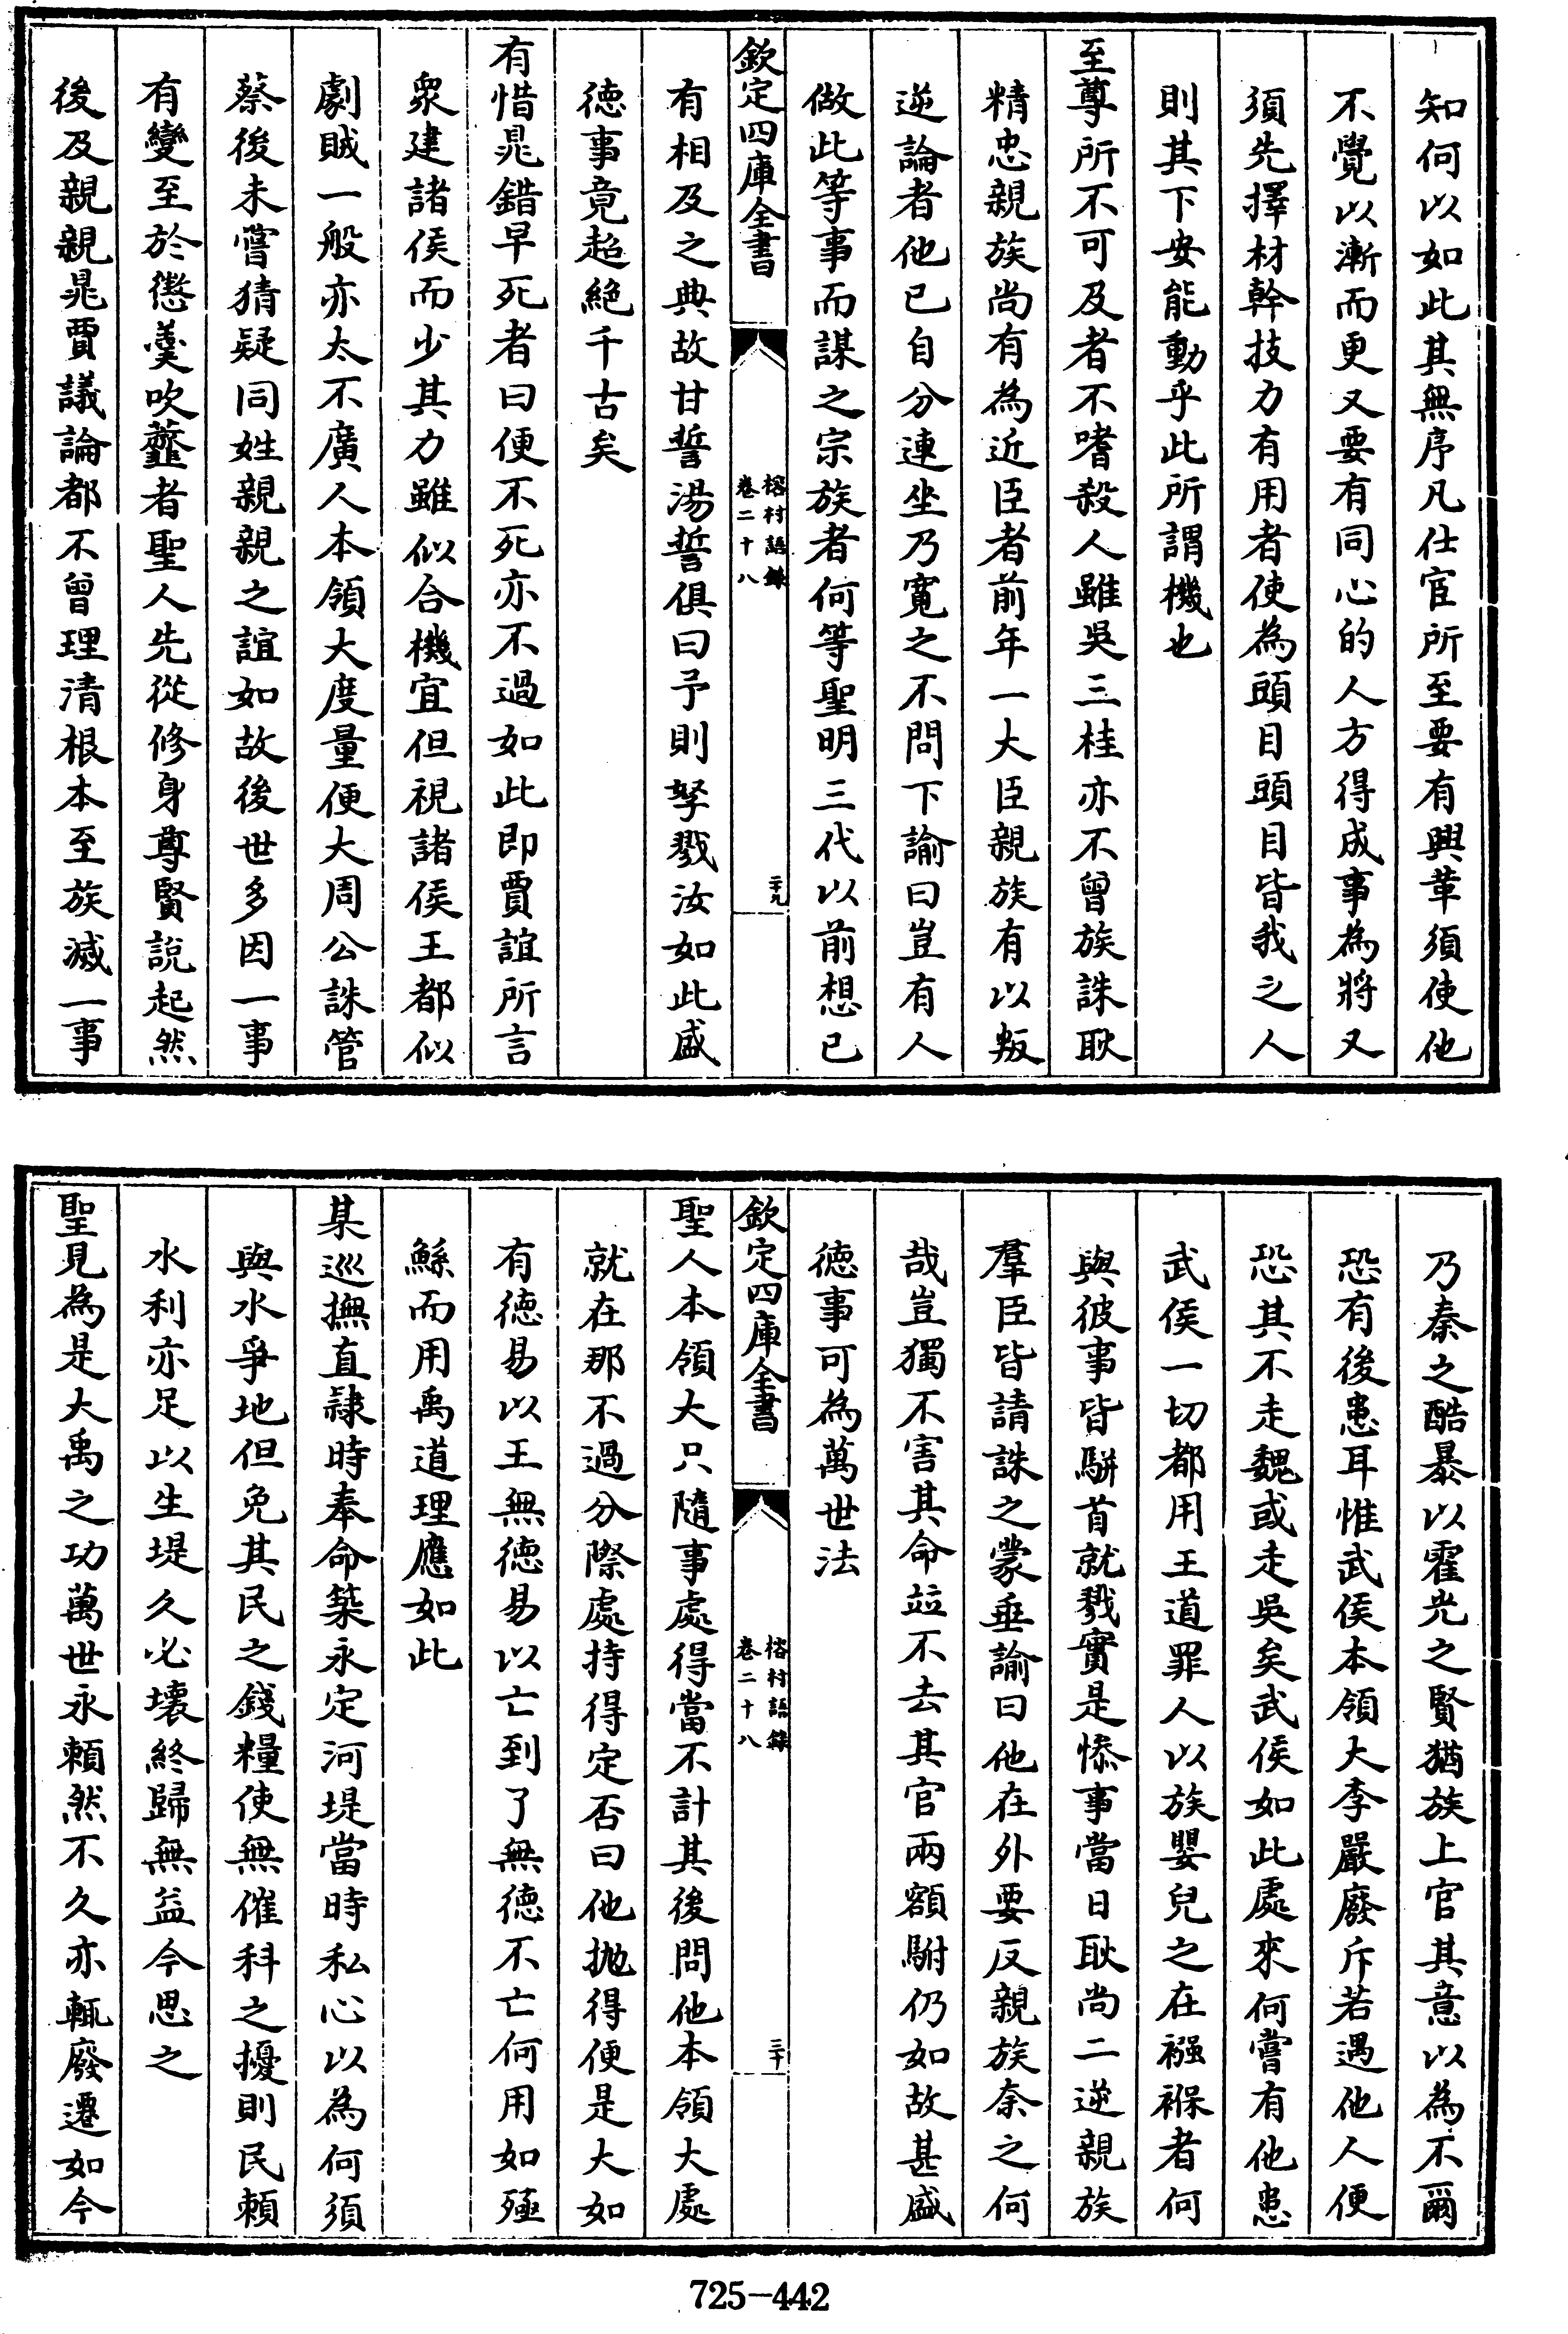 知何以如此其無序凡仕宦所至要有興革須使他
不覺以漸而更又要有同心的人方得成事為將又
須先擇材幹技力有用者使為頭目頭目皆我之人
則其下安能動乎此所謂機也
至尊所不可及者不嗜殺人雖吳三桂亦不曾族誅耿
精忠親族尚有為近臣者前年一大臣親族有以叛
逆論者他已自分連坐乃寬之不問下諭曰豈有人
做此等事而謀之宗族者何等聖明三代以前想已
欽定四庫全書
榕村語錄
卷二十八
二十九
有相及之典故甘誓湯誓俱曰予則孥戮汝如此盛
徳事竟超絶千古矣
有惜鼂錯早死者曰便不死亦不過如此即賈誼所言
衆建諸侯而少其力雖似合機宜但視諸侯王都似
劇賊一般亦太不廣人本領大度量便大周公誅管
蔡後未嘗猜疑同姓親親之誼如故後世多因一事
有變至於懲羮吹虀者聖人先從修身尊賢說起然
後及親親鼂賈議論都不曾理清根本至族滅一事
乃秦之酷暴以霍光之賢猶族上官其意以為不爾
恐有後患耳惟武侯本領大李嚴廢斥若遇他人便
恐其不走魏或走吳矣武侯如此處來何嘗有他患
武侯一切都用王道罪人以族嬰兒之在襁褓者何
與彼事皆駢首就戮實是慘事當日耿尚二逆親族
羣臣皆請誅之蒙垂諭曰他在外要反親族奈之何
哉豈獨不害其命竝不去其官兩額駙仍如故甚盛
徳事可為萬世法
欽定四庫全書
榕村語錄
卷二十八
三十
聖人本領大只隨事處得當不計其後問他本領大處
就在那不過分際處持得定否曰他拋得便是大如
有徳易以王無徳易以亡到了無徳不亡何用如殛
鯀而用禹道理應如此
某巡撫直隷時奉命築永定河堤當時私心以為何須
與水爭地但免其民之錢糧使無催科之擾則民頼
水利亦足以生堤久必壞終歸無益今思之
聖見為是大禹之功萬世永頼然不久亦輒廢遷如今
725-442